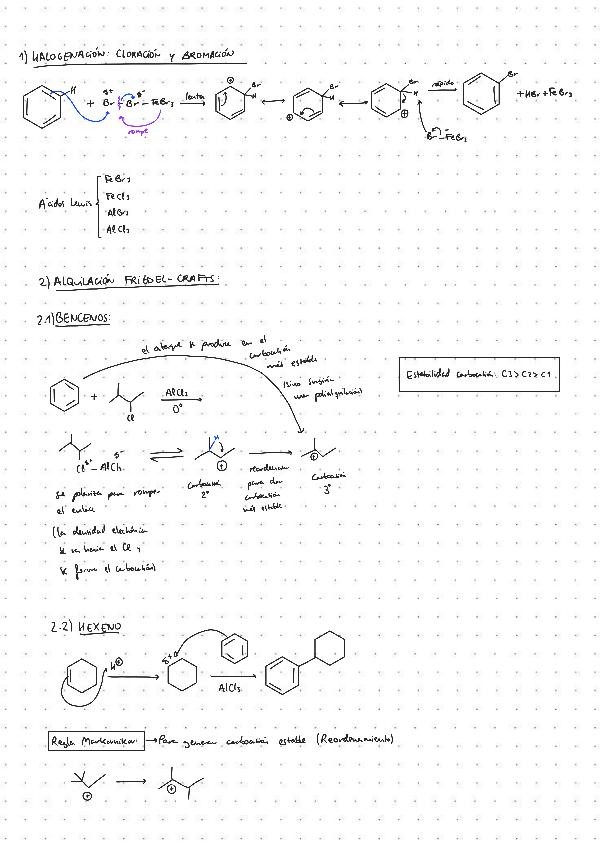 1) HALOGENACIÓN: CLORACIÓN y BROMACIÓN
H + Br δ+ – Br δ- – FeBr3 lenta ⊕ Br H ⊕ Br H Br H ⊕ rápido Br + HBr + FeBr3
rompe
Br – FeBr3
Ácidos Lewis
FeBr3
FeCl3
AlBr3
AlCl3
2) ALQUILACIÓN FRIEDEL-CRAFTS:
2.1) BENCENOS:
el ataque se produce en el
carbocatión
más estable
(sino surgirían
una polialquilación)
Estabilidad carbocatión: C3 > C2 > C1
+ Cl AlCl3
0°
Cl δ+ – AlCl3 δ-
H
⊕
⊕
Carbocatión
2°
reordenación
para dar
carbocatión
más estable
Carbocatión
3°
se polariza para romper
el enlace
(la densidad electrónica
se va hacia el Cl y
se forma el carbocatión)
2.2) HEXENO
H⊕ δ+
AlCl3
Regla Markovnikov → Para generar carbocatión estable (Reordenamiento)
⊕ ⊕